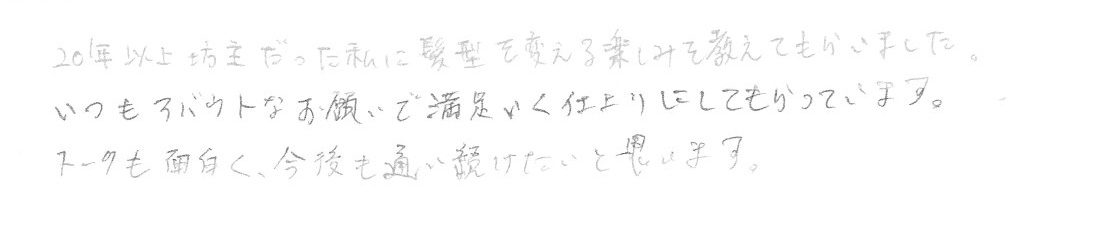 20年以上坊主だった私に髪型を変える楽しみを教えてもらいました。
いつもアバウトなお願いで満足いく仕上りにしてもらっています。
トークも面白く、今後も通い続けたいと思います。